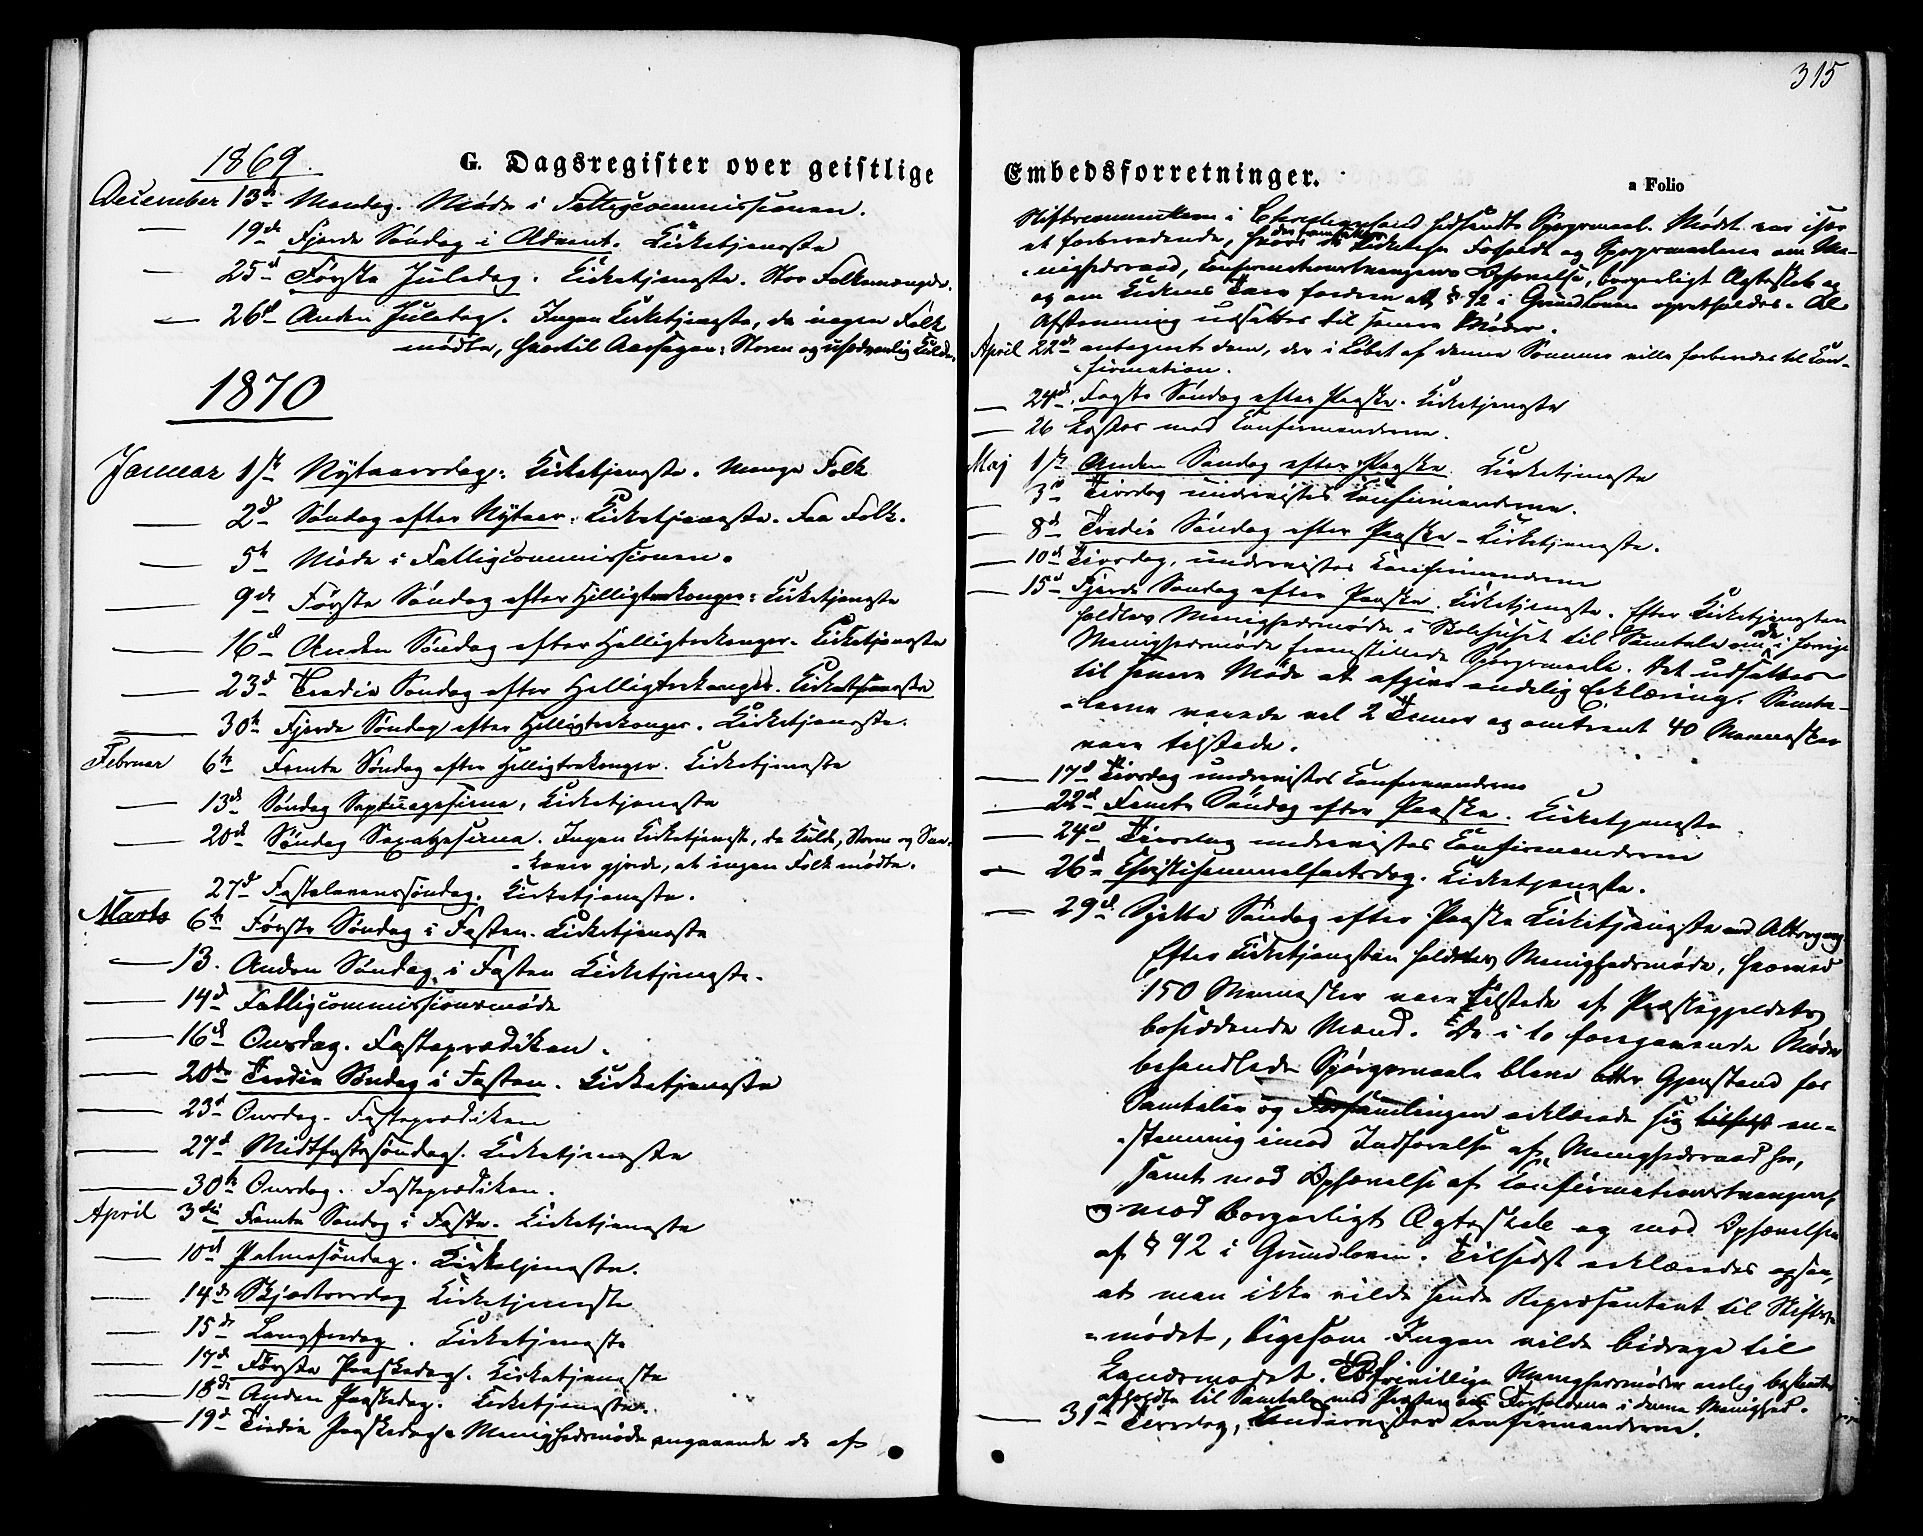 315
G. Dagsregister over geistlige
1869
December 13de Mandag. Møde i Fattigcommissionen.
— 19de Fjerde Søndag i Advent. Kirketjeneste
— 25de Første Juledag. Kirketjeneste. Stor Folkemængde.
— 26de Anden Juledag. Ingen Kirketjeneste, da ingen Folk
mødte, hvortil Aarsagen: Storm og usædvanlig Kulde.
1870
Januar 1ste Nytaarsdag. Kirketjeneste. Mange Folk
— 2d Søndag efter Nytaar. Kirketjeneste. Faa Folk.
— 5te Møde i Fattigcommissionen.
— 9de Første Søndag efter Helligtrekonger. Kirketjeneste
— 16d Anden Søndag efter Helligtrekonger. Kirketjeneste
— 23d Tredie Søndag efter Helligtrekonger. Kirketjeneste
— 30te Fjerde Søndag efter Helligtrekonger. Kirketjeneste.
Februar 6te Femte Søndag efter Helligtrekonger. Kirketjeneste
— 13de Søndag Septuagesima, Kirketjeneste
— 20de Søndag Sexagesima. Ingen Kirketjeneste, da Kulde, Storm og Snee-
gjorde, at ingen Folk mødte.
— 27d Fastelavenssøndag. Kirketjeneste.
Marts 6te Første Søndag i Fasten. Kirketjeneste
— 13. Anden Søndag i Fasten Kirketjeneste.
— 14d Fattigcommissionsmøde
— 16d Onsdag. Fasteprædiken.
— 20de Tredie Søndag i Fasten. Kirketjeneste
— 23d Onsdag. Fasteprædiken
— 27d Midtfastesøndag. Kirketjeneste
— 30te Onsdag. Fasteprædiken.
April 3die Femte Søndag i Faste. Kirketjeneste
— 10d Palmesøndag. Kirketjeneste.
— 14de Skjærtorsdag Kirketjeneste
— 15de Langfredag. Kirketjeneste
— 17d Første Paaskedag. Kirketjeneste
— 18de Anden Paaskedag. Kirketjeneste.
— 19d Tredie Paaskedag. Menighedsmøde angaaende de af
Embedsforretninger.
a Folio
i Christianssand udsendte Spørgsmaal. Mødet var især
et forberedende, hvori de kirkelige Forhold og Spørgsmaalene om Me-
nighedsraad, Confirmationstvangens Ophævelse, borgerligt Ægteskab og
og om Kirkens Tarv fordrer at § 92 i Grundloven opretholdes. Al
Afstemning udsattes til senere Møder.
April 22de antaget dem, der i Løbet af denne Sommer ville forberedes til Con-
firmation.
— 24d. Første Søndag efter Paaske. Kirketjeneste
— 26 med Confirmanderne.
Maj 1ste Anden Søndag efter Paaske. Kirketjeneste
— 3d Tirsdag undervistes Confirmanderne.
— 8d Tredie Søndag efter Paaske - Kirketjeneste.
— 10d Tirsdag, undervistes Confirmanderne
— 15d Fjerde Søndag efter Paaske. Kirketjeneste. Efter Kirketjenesten
holdtes Menighedsmøde i Skolehuset til Samtale om de i forrige
Menighedsmøde fremstillede Spørgsmaale. Det udsattes
til senere Møde at afgive endelig Erklæring. Samta-
lerne varede vel 2 Timer og omtrent 40 Mennesker
vare tilstede.
— 17d Tirsdag undervistes Confirmanderne
— 22d Femte Søndag efter Paaske. Kirketjeneste
— 24d Tirsdag undervistes Confirmanderne
— 26d Christihimmelfartsdag. Kirketjeneste.
— 29d. Sjette Søndag efter Paaske Kirketjeneste med Altergang
Efter Kirketjenesten holdtes Menighedsmøde, hvorved
150 Mennesker vare tilstede af Præstegjeldets
bosiddende Mænd. De i to foregaaende Møder
behandlede Spørgsmaale bleve atter Gjenstand for
Samtaler og Forsamlingen erklærede sig en-
stemmig imod Indførelse af Menighedsraad her,
samt mod Ophævelse af Confirmationstvangen,
og mod borgerligt Ægteskab og mod Ophævelsen
af § 92 i Grundloven. Tilsidst erklæredes ogsaa,
at man ikke vilde sende Repræsentant til Stifts-
mødet, ligesom Ingen vilde bidrage til
Landsmødet. frivillige Menighedsmøder
afholdte til Samtale med Præsten om Forholdene i denne Menighed.
— 31te Tirsdag, undervistes Confirmanderne.